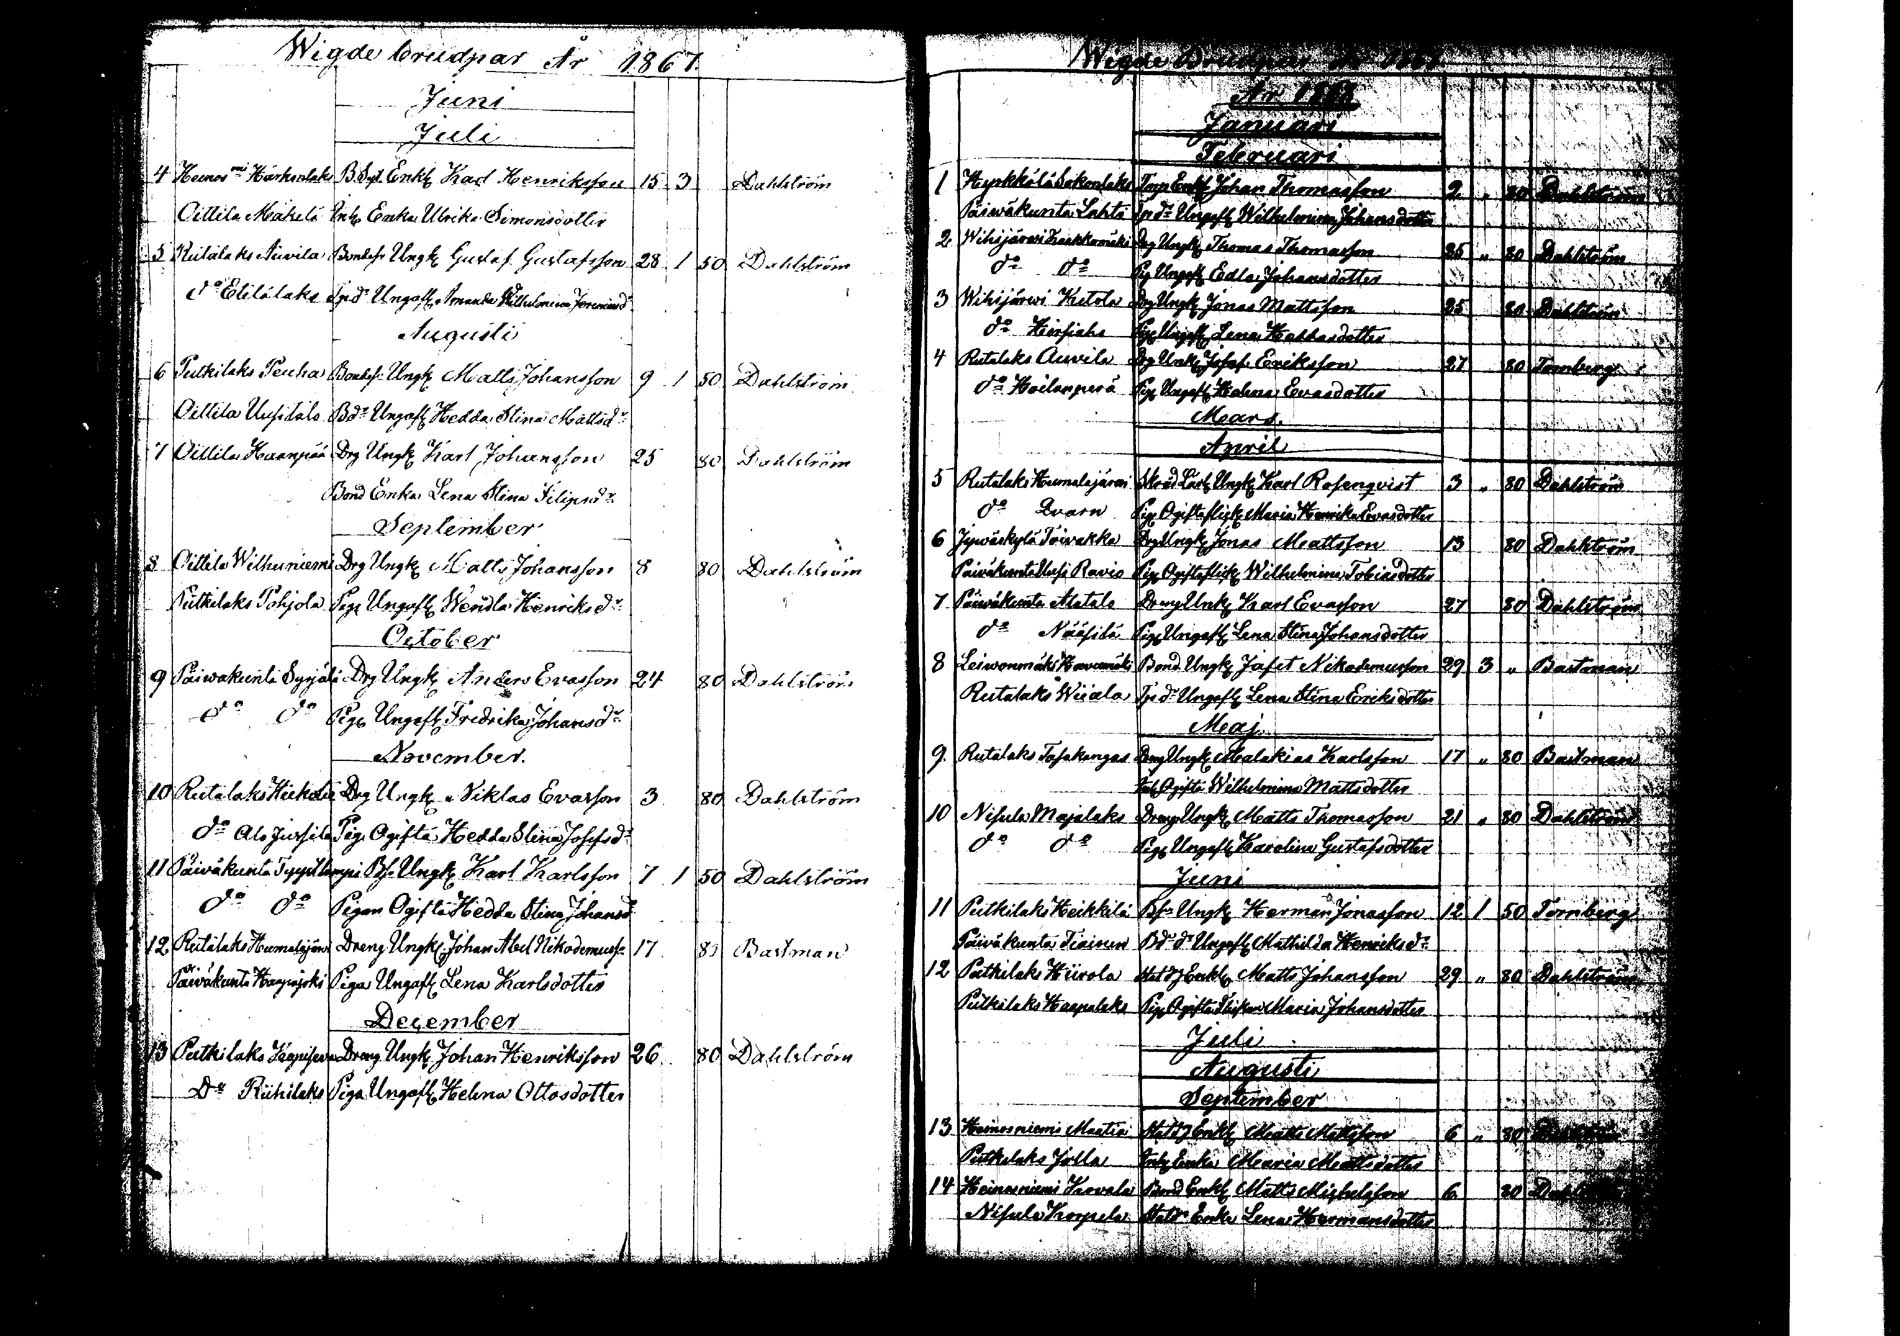 Wigde brudpar År 1867.
Juni
Juli
4 Heinos mi Härkenlaks B.Sp. Enkl Karl Henriksson 15 3 Dahlström
Oittila Mäkelä Enka Ulrika Simonsdotter
5 Rutalaks Auvila Bondes. Ungk Gustaf Gustafsson 28 1 50 Dahlström
do Etilälaks Tpdr Ungqfl Amanda Wilhelmina Jeremiasd.
Augusti
6 Putkilaks Peuha Bondes. Ungk Matts Johansson 9 1 50 Dahlström
Oittila Uusitalo Bdr Ungqfl Hedda Stina Mattsdr
7 Oittila Haanpää Drg Ungk Karl Johansson 25 80 Dahlström
Bond Enka Lena Stina Filipsdr
September
8 Oittila Wilhuniemi Drg Ungk Matts Johansson 8 80 Dahlström
Putkilaks Pohjola Pig Ungqfl Wendla Henriksdr
October
9 Päiwäkunta Syrjälä Drg Ungk Anders Evasson 24 80 Dahlström
do do Pig Ungqfl Fredrika Johansdr
November.
10 Rutalaks Heikkilä Drg Ungk Niklas Evasson 3 80 Dahlström
do Ala Jussila Pig Ogifta Hedda Stina Josefsdr
11 Päiväkunta Tyyppi Bs. Ungk Karl Karlsson 7 1 50 Dahlström
do do Pigan Ogifta Hedda Stina Johansdr
12 Rutalaks Humalajärvi Dreng Ungk Johan Abel Nikodemuss. 17 80 Bastman
Päiväkunta Haapajoki Piga Ungqfl Lena Karlsdotter
December
13 Putkilaks Dreng Ungk Johan Henriksson 26 80 Dahlström
Do Riihilaks Piga Ungqfl Helena Ottosdotter
Wigde Brudpar År 1868
År 1868
Januari
Februari
1 Hyrkkälä Enkl Johan Thomasson 2 „ 80 Dahlström
Päiwäkunta Lahti Tpdr Ungqfl Wilhelmina Johansdotter
2 Wihijärwi Drg Ungk Thomas Thomasson 25 „ 80 Dahlström
do do Pig Ungqfl Edla Johansdotter
3 Wihijärwi Kutola Drg Ungk Jonas Mattsson 25 80 Dahlström
do Hirsiaho Pig Ungqfl Lena
4 Rutalaks Auvila Drg Ungk Josef Eriksson 27 80 Tornberg
do Hoilanperä Pig Ungqfl Helena Evasdotter
Mars.
April
5 Rutalaks Humalajärvi Skräd Lärl Ungk Karl Rosenqvist 3 „ 80 Dahlström
do Qvarn Pig Ogifta Maria Henrika Evasdotter
6 Jywäskylä Toivakka Drg Ungk Jonas Mattsson 13 80 Dahlström
Päiväkunta Uusi Ravio Pig Wilhelmina Tobiasdotter
7 Päiwäkunta Alatalo Dreng Ungk Karl Evasson 27 80 Dahlström
do Pig Ungqfl Lena Stina Johansdotter
8 Leiwonmäki Bond. Ungk Jafet Nikodemusson 29 3 „ Bastman
Rutalaks Wiiala Tpdr Ungqfl Lena Stina Eriksdotter
Maj.
9. Rutalaks Dreng Ungk Malakias Karlsson 17 „ 80 Bastman
Ogifta Wilhelmina Mattsdotter
10 Nisula Majalaks Dreng Ungk Matts Thomasson 21 „ 80 Dahlström
do do Pig Ungqfl Karolina Gustafsdotter
Juni
11 Putkilaks Heikkilä Bs. Ungk Herman Jonasson 12 1 50 Tornberg
Päiväkunta Tiainen Bdr Ungqfl Mathilda Henriksdr
12 Putkilaks Hiirola Enkl Matts Johansson 29 „ 80 Dahlström
Putkilaks Haapalaks Pig Ogifta Maria Johansdotter
Juli
Augusti
September
13 Heinosniemi Enkl Matts Mattsson 6 „ 80 Dahlström
Putkilaks Jylla Enka Maria Mattsdotter
14 Heinosniemi Kovala Bond Enkl Matts Michelsson 6 80 Dahlström
Nisula Korpela Enka Lena Hermansdotter